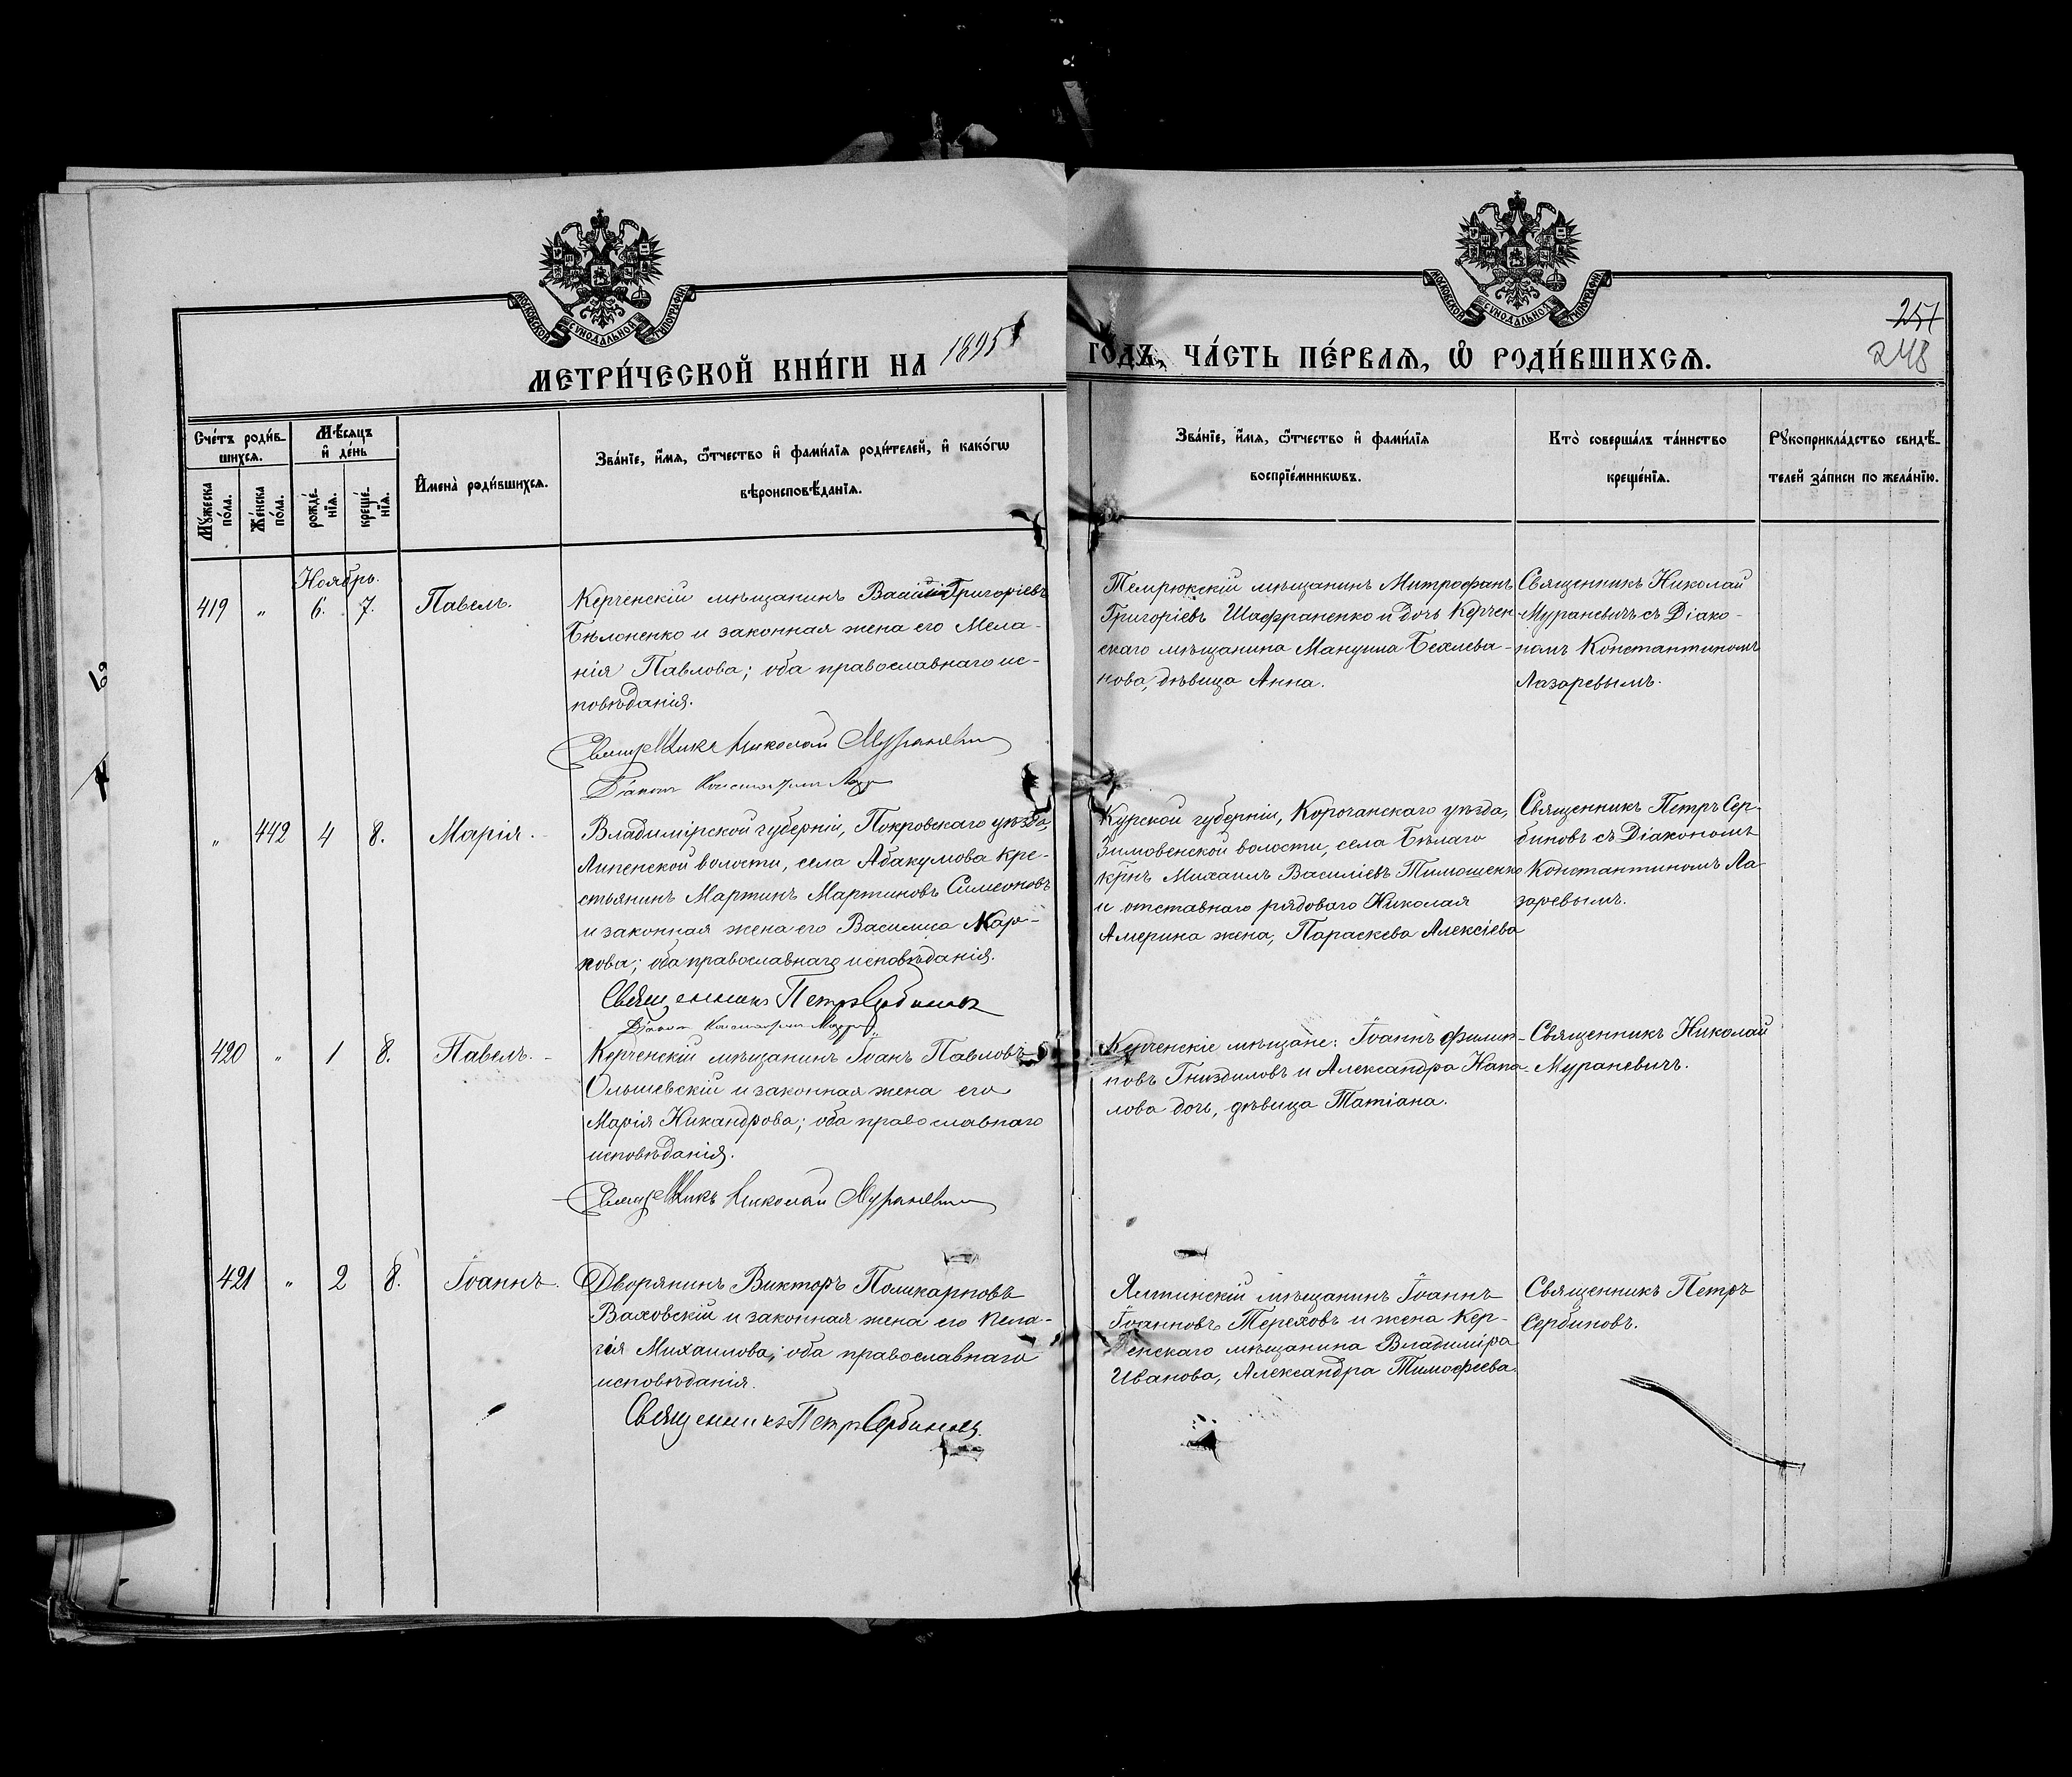 МОСКОВСКОЙ СѴНОДАЛЬНОЙ ТИПОГРАФІИ
МОСКОВСКОЙ СѴНОДАЛЬНОЙ ТИПОГРАФІИ
251
248
МЕТРИ́ЧЕСКОЙ КНИ́ГИ НА 1895 ГО́ДЪ, ЧА́СТЬ ПЕ́РВАЯ, Ѡ҆ РОДИ́ВШИХСЯ.
Сче́тъ роди́в-
шихся.
Му́жеска по́ла.
Же́нска по́ла.
Мѣ́сяцъ
и҆ де́нь
рожде́-
нїя.
креще́-
нїя.
И҆мена̀ роди́вшихся.
Зва́нїе, и҆́мя, ѻ҆́тчество и҆ фами́лїя роди́телей, и҆ како́гѡ
вѣроисповѣ́данїя.
Зва́нїе, и҆́мя, ѻ҆́тчество и҆ фами́лїя
воспрїе́мникѡвъ.
Кто̀ соверша́лъ та́инство
креще́нїя.
Рꙋкоприкла́дство свидѣ́-
телей за́писи по жела́нїю.
Ноябрь.
419 " 6. 7. Павелъ.
Керченскій мѣщанинъ Василій Григоріевъ
Бѣлоненко и законная жена его Мела-
нія Павлова; оба православнаго ис-
повѣданія.
Священникъ Николай Мураневичъ
Діаконъ Константинъ Лазаревъ
Темрюкскій мѣщанинъ Митрофанъ
Григоріевъ Шафраненко и дочь Керчен-
скаго мѣщанина Мануила Бехлева-
нова, дѣвица Анна.
Священникъ Николай
Мураневичъ съ Діако-
номъ Константиномъ
Лазаревымъ.
" 442 4 8. Марія.
Владимірской губерніи, Покровскаго уѣзда,
Липенской волости, села Абакумова кре-
стьянинъ Мартинъ Мартиновъ Симеоновъ
и законная жена его Василиса Кар-
пова; оба православнаго исповѣданія.
Священникъ Петръ Сербиновъ
Діаконъ Константинъ Лазаревъ
Курской губерніи, Корочанскаго уѣзда,
Зимовенской волости, села Бѣлаго
крнъ Михаилъ Василіевъ Тимошенко
и отставнаго рядоваго Николая
Америна жена, Параскева Алексіева
Священникъ Петръ Сер-
биновъ съ Діакономъ
Константиномъ Ла-
заревымъ.
420 " 1 8. Павелъ.
Керченскій мѣщанинъ Іоанъ Павловъ
Ольшевскій и законная жена его
Марія Никандрова; оба православнаго
исповѣданія.
Священникъ Николай Мураневичъ
Керченскіе мѣщане: Іоаннъ Филип-
повъ Гниздиловъ и Александра Напа-
лова дочь, дѣвица Татіана.
Священникъ Николай
Мураневичъ.
421 " 2 8. Іоаннъ.
Дворянинъ Викторъ Поликарповъ
Ваховскій и законная жена его Пела-
гія Михаилова; оба православнаго
исповѣданія.
Священникъ Петръ Сербиновъ.
Ялтинскій мѣщанинъ Іоаннъ
Іоанновъ Тереховъ и жена Кер-
ченскаго мѣщанина Владиміра
Иванова, Александра Тимофеева.
Священникъ Петръ
Сербиновъ.